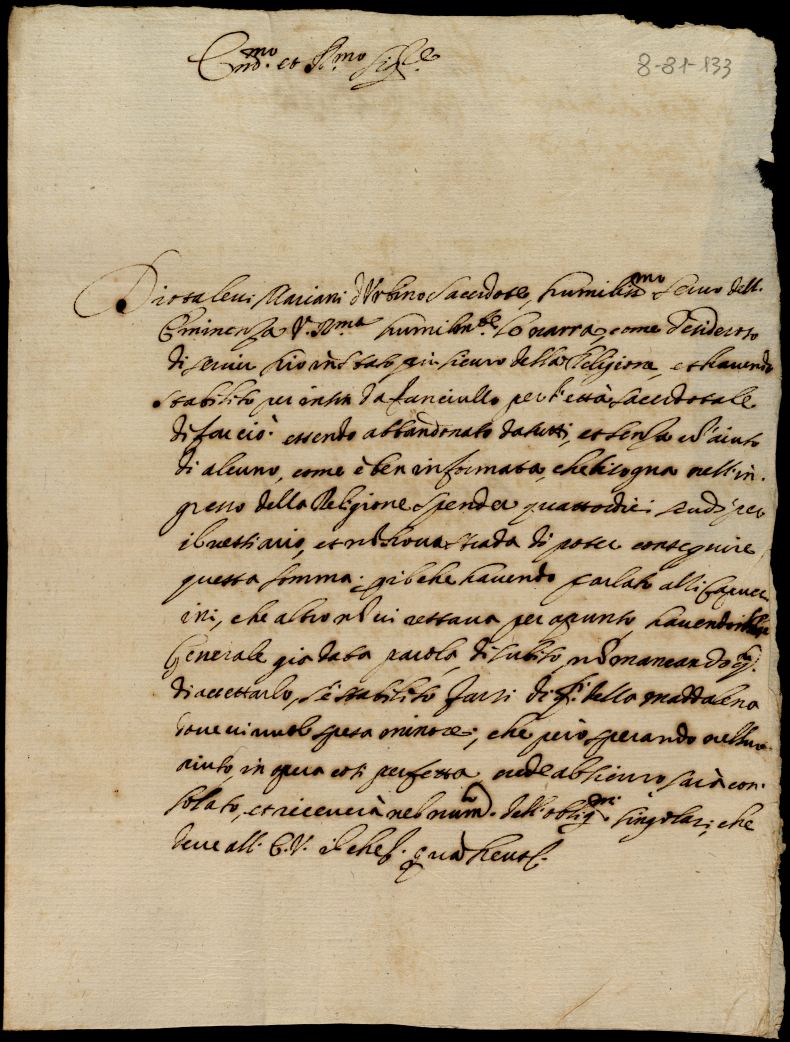 Em.mo et R.mo Sig.re
8-81-133
Diotalevi Mariani d'Urbino Sacerdote, humiliss.mo servo dell.
Eminenza V. R.ma humilm.te le narra, come desideroso
di servir Dio in stato più sicuro della Religione, et havendo
stabilito per insin da fanciullo per l'età sacerdotale
di far ciò: essendo abbandonato da tutti, et senza
di alcuno, come è ben informata, che bisogna nell'in-
gresso della Religione spender quattordici scudi per
il vestiario, et nō trova strada di poter conseguire
questa somma; havendo parlato alli Capuc-
ini, che altro nō vi restava per apunto, havendo il
Generale già data parola di subito, nō mancando
di accettarlo, s'è stabilito farsi di q.li della Maddalena
dove ci vuole spesa minore; che però sperando nel suo
aiuto, in opera così perfetta, crede al sicuro sarà con-
solato, et riceverà nel num.o dell'oblig.ni singolari, che
deve all. E. V. il che